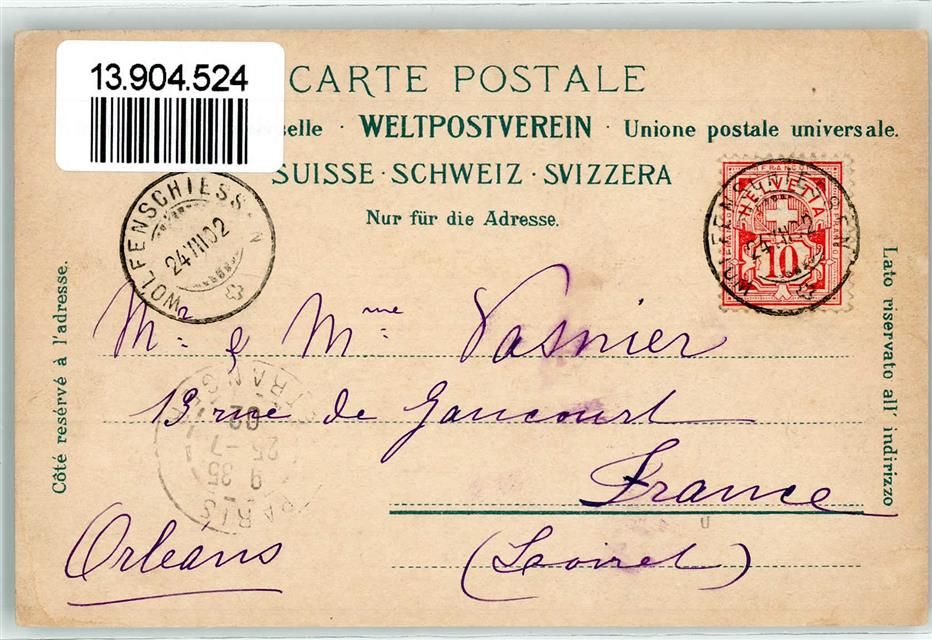 13.904.524
CARTE POSTALE
selle · WELTPOSTVEREIN · Unione postale universale.
SUISSE · SCHWEIZ · SVIZZERA
Nur für die Adresse.
WOLFENSCHIESSEN
24 VII 02
HELVETIA
10
WOLFENSCHIESSEN
24 VII 02
Côté resérvé à l'adresse.
Lato riservato all' indirizzo
Mr. & Mme. Vasnier
13 rue de Gaucourt
France
Orléans
(Loiret)
PARIS ETRANGER
9 35
25-7
02